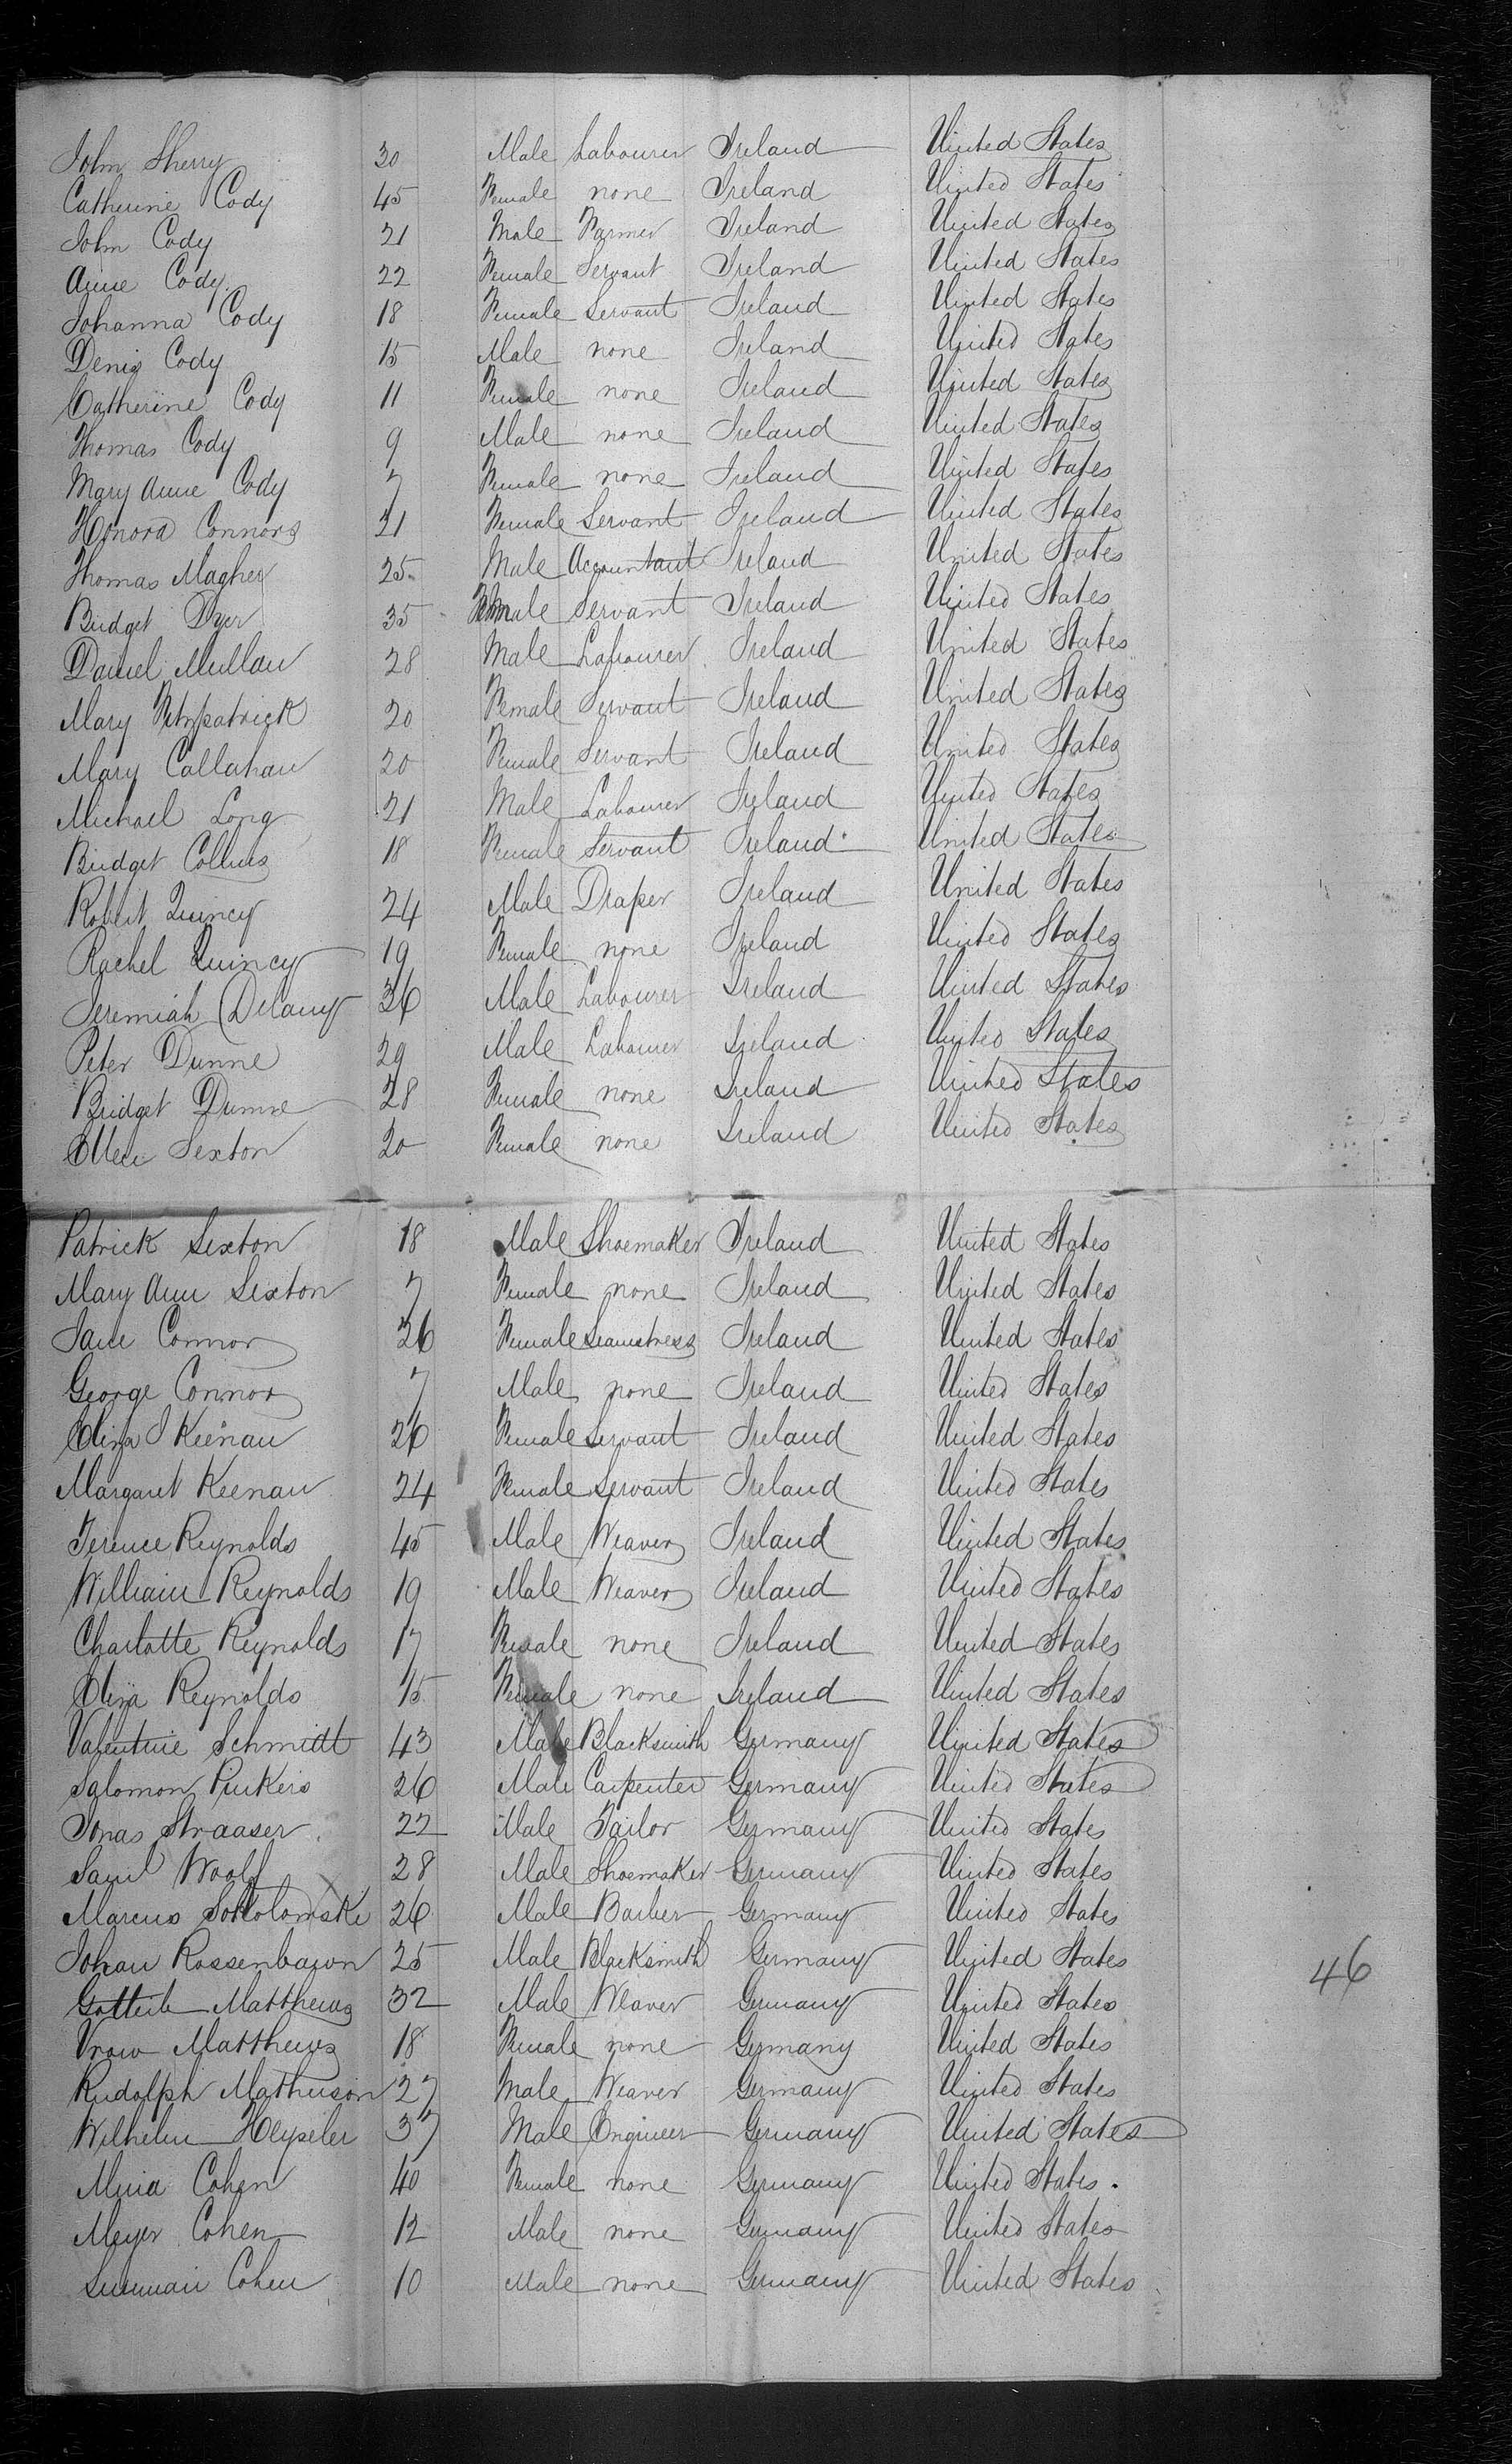 John Sherry 30 Male Labourer Ireland United States
Catherine Cody 45 Female none Ireland United States
John Cody 21 Male Farmer Ireland United States
Anne Cody 22 Female Servant Ireland United States
Johanna Cody 18 Female Servant Ireland United States
Denis Cody 15 Male none Ireland United States
Catherine Cody 11 Female none Ireland United States
Thomas Cody 9 Male none Ireland United States
Mary Anne Cody 7 Female none Ireland United States
Honora Connors 21 Female Servant Ireland United States
Thomas Magher 25 Male Accountant Ireland United States
Bridget Dyer 35 Female Servant Ireland United States
Daniel Mullan 28 Male Labourer Ireland United States
Mary Fitzpatrick 20 Female Servant Ireland United States
Mary Callahan 20 Female Servant Ireland United States
Michael Long 21 Male Labourer Ireland United States
Bridget Collins 18 Female Servant Ireland United States
Robert Quincy 24 Male Draper Ireland United States
Rachel Quincy 19 Female none Ireland United States
Jeremiah Delany 36 Male Labourer Ireland United States
Peter Dunne 29 Male Labourer Ireland United States
Bridget Dunne 28 Female none Ireland United States
Ellen Sexton 20 Female none Ireland United States
Patrick Sexton 18 Male Shoemaker Ireland United States
Mary Ann Sexton 7 Female none Ireland United States
Jane Connor 26 Female Seamstress Ireland United States
George Connor 7 Male none Ireland United States
Eliza J Keenan 26 Female Servant Ireland United States
Margaret Keenan 24 Female Servant Ireland United States
Terence Reynolds 45 Male Weaver Ireland United States
William Reynolds 19 Male Weaver Ireland United States
Charlotte Reynolds 17 Female none Ireland United States
Eliza Reynolds 15 Female none Ireland United States
Valentine Schmidt 43 Male Blacksmith Germany United States
Salomon 26 Male Carpenter Germany United States
Jonas Straaser 22 Male Tailor Germany United States
Saml Woolf 28 Male Shoemaker Germany United States
Marcus 26 Male Barber Germany United States
Johan Rossenbawn 25 Male Blacksmith Germany United States
46
Gottlieb Matthews 32 Male Weaver Germany United States
Vrow Matthews 18 Female none Germany United States
Rudolph Mathuson 27 Male Weaver Germany United States
Wilhelm Heyseler 37 Male Engineer Germany United States
Mina Cohen 40 Female none Germany United States.
Meyer Cohen 12 Male none Germany United States
Cohen 10 Male none Germany United States